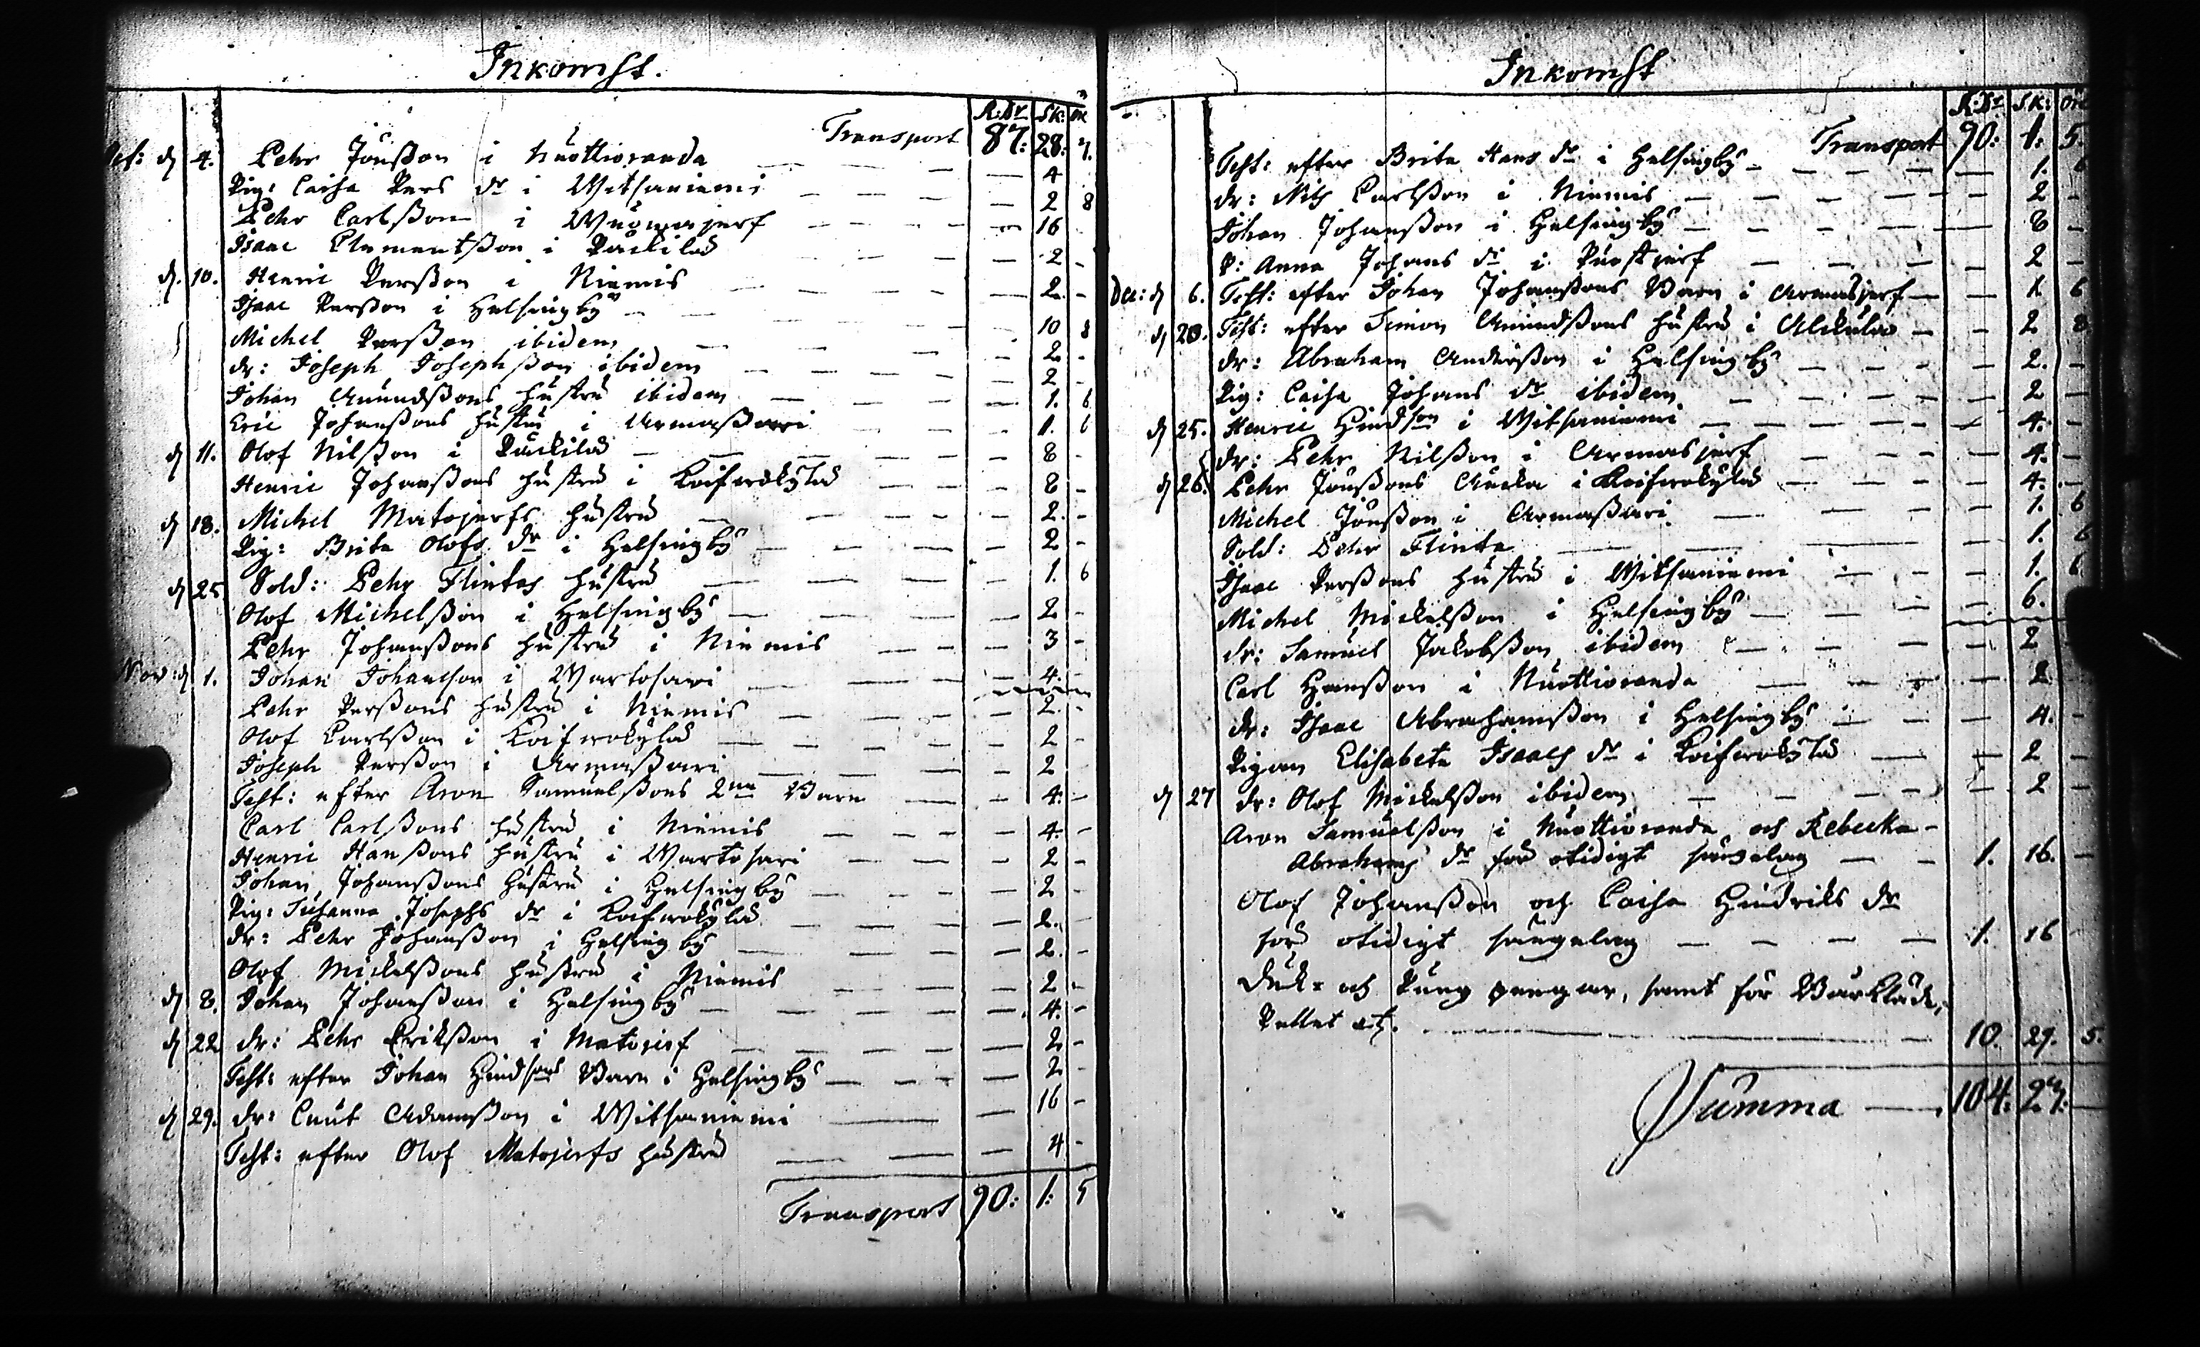 Inkomst.
R:Dr Sk: ör
Transport 87: 28: 7.
Oct: d. 4. Pehr Jönsson i Nuottioranda — 4
Pig: Caisa Pers dr i Witsaniemi — 2 8
Pehr Carlsson i Wuomajerf — 16 -
Isaac Clementsson i Päckilä — 2 -
d. 10. Henric Persson i Niemis — 2. -
Isaac Persson i Helsingby — 10 8
Michel Persson ibidem — 2 -
dr: Joseph Josephsson ibidem — 2 -
Johan Amundssons hustru ibidem — 1. 6
Eric Johanssons hustru i Armassari — 1. 6
d 11. Olof Nilsson i Päckilä — 8 -
Henric Johanssons hustru i Koifwokylä — 8 -
d 18. Michel Matojerfs hustru — 2. -
Pig: Brita Olofs dr i Helsingby — 2 -
d 25 Sold: Pehr Flintas hustru — 1. 6
Olof Michelsson i Helsingby — 2 -
Pehr Johanssons hustru i Niemis — 3 -
Nov: d 1. Johan Johansson i Wartosari — 4. -
Pehr Perssons hustru i Niemis — 2. -
Olof Carlsson i Koifwokylä — 2 -
Joseph Persson i Armassari — 2 -
Test: efter Aron Samuelssons 2ne Barn — 4. -
Carl Carlssons hustru i Niemis — 4. -
Henric Hanssons hustru i Wartosari — 2 -
Johan Johanssons hustru i Helsingby — 2 -
Pig: Susanna Josephs dr i Koifwokylä — 2. -
dr: Pehr Johansson i Helsingby — 2. -
Olof Mickelssons hustru i Niemis — 2 -
d 8. Johan Johansson i Helsingby — 4. -
d 22 dr: Pehr Eriksson i Matojerf — 2 -
Test: efter Johan Hindsons Barn i Helsingby — 2 -
d 29. dr: Cnut Adamsson i Witsaniemi — 16 -
Test: efter Olof Matojerfs hustru — 4 -
Transport 90: 1: 5
Inkomst
R:Dr Sk: öre
Transport 90: 1: 5.
Test: efter Brita Hans dr i Helsingby — 1. 6
dr: Nils Carlsson i Niemis — 2 -
Johan Johansson i Helsingby — 8 -
P: Anna Johans dr i Puostjerf — 2 -
Dec: d 6. Test: efter Johan Johanssons Barn i Armasjerf — 1 6
d 20. Test: efter Simon Amundssons hustru i Alckula — 2 8
dr: Abraham Andersson i Helsingby — 2. -
Pig: Caisa Johans dr ibidem — 2 -
d 25. Henric Hindson i Witsaniemi — 4. -
dr: Pehr Nilsson i Armasjerf — 4. -
d 26. Pehr Jönssons Encka i Koifwokylä — 4. -
Michel Jönsson i Armassari — 1. 6
Sold: Pehr Flinta — 1. 6
Isaac Perssons hustru i Witsaniemi — 1. 6
Michel Mickelsson i Helsingby — 6.
dr: Samuel Jakobsson ibidem — 2
Carl Hansson i Nuottioranda — 2
dr: Isaac Abrahamsson i Helsingby — 4. -
Pigan Elisabeta Isaacs dr i Koifwokylä — 2 -
d 27 dr: Olof Mickelsson ibidem — 2 -
Aron Samuelsson i Nuottioranda och Rebecka
Abrahams dr för otidigt sängelag — 1. 16. -
Olof Johansson och Caisa Hindriks dr
för otidigt sängelag — 1. 16
och Pung pengar, samt för Bårkläde,
Pellet etc. — 10. 29. 5.
Summa — 104: 27: —